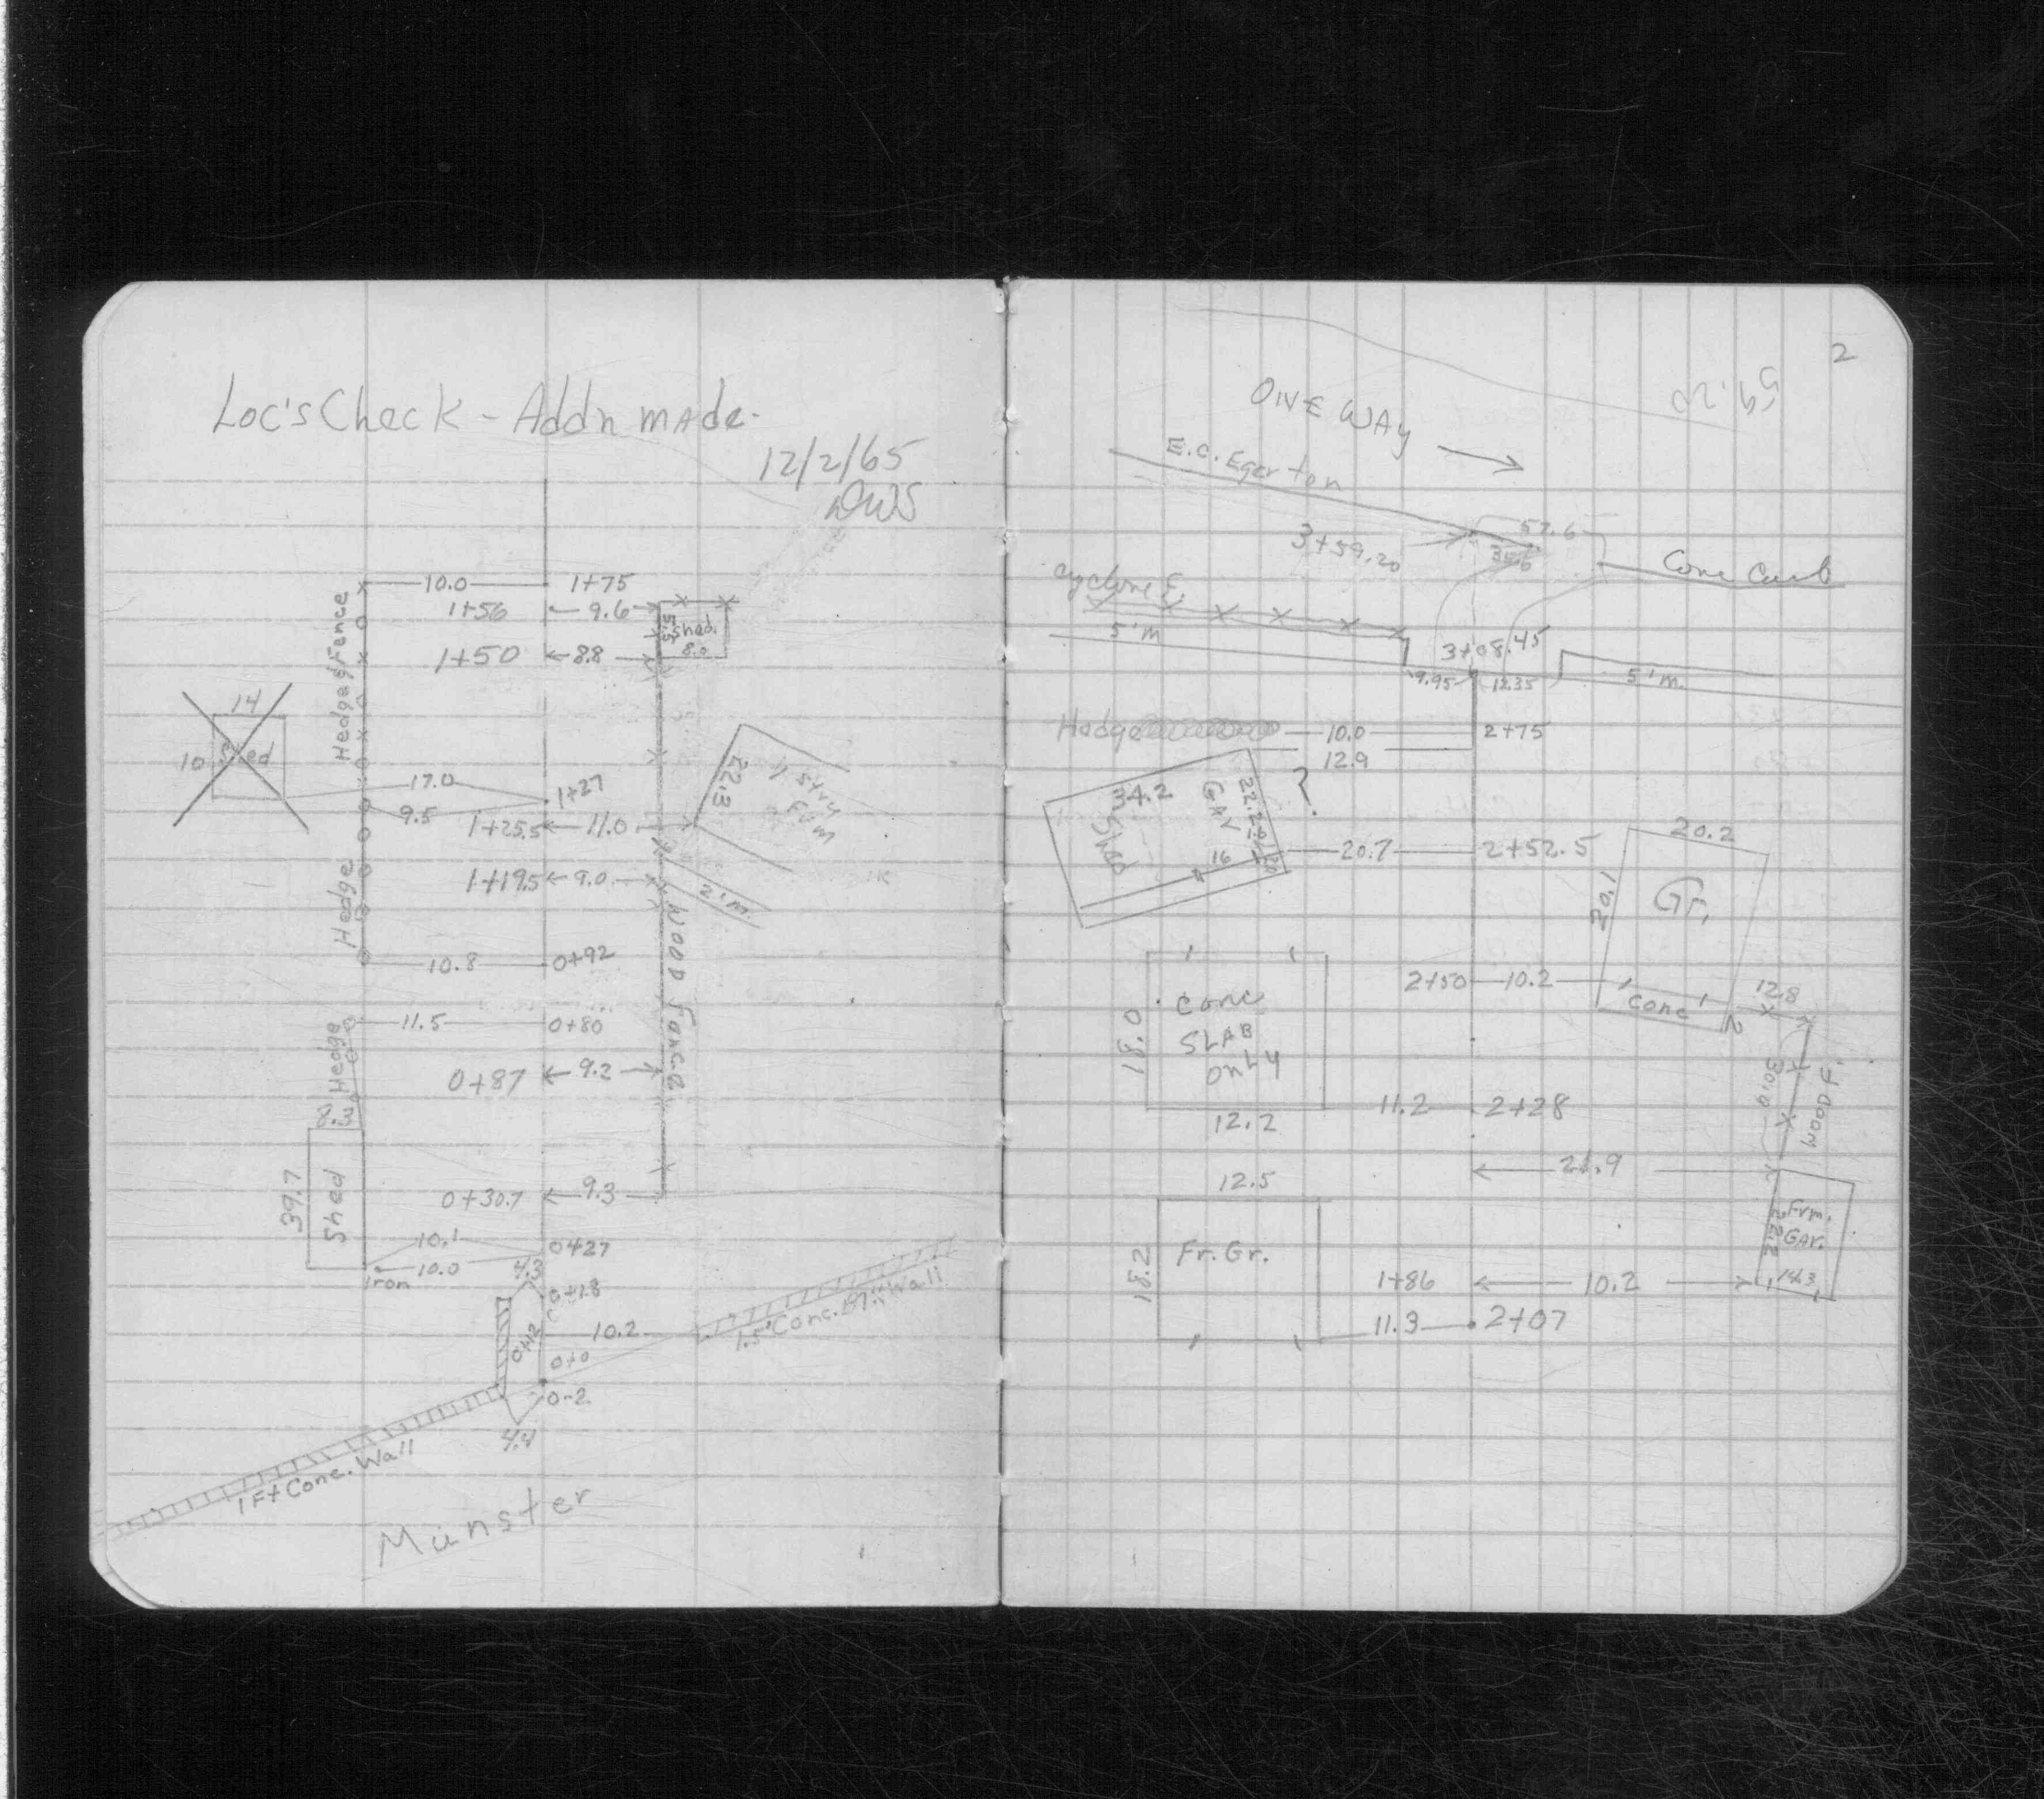 Loc's Check - Addn made.
12/2/65
DWS
10.0 1+75
1+56 9.6
5.5 Shed
8.0
1+50 8.8
Hedge & Fence
14
10 Shed
17.0 1+27
9.5
1+25.5 11.0
22.3
1 Stry
Frm
1+19.5 9.0
2' m.
Hedge
10.8 0+92
Wood Fence
11.5 0+80
Hedge
0+87 9.2
8.3
39.7
Shed
0+30.7 9.3
10.1 0+27
10.0
Iron
4.3
0+18
0+12
10.2
1.5' Conc. Bl. Wall
0+0
0-2
4.4
1 Ft Conc. Wall
Munster
2
59.20
ONE WAY
E.C. Egerton
57.6
3+59.20
Conc Curb
Cyclone F.
5' m
3+08.45
9.95 12.35
5' m.
Hedge
10.0 2+75
12.9
?
34.2
Shed
GAV
22.2
16
20.7 2+52.5
20.2
20.1
Gr.
2+50 10.2
Conc
12.8
Conc
SLAB
ONLY
18.0
12.2
11.2 2+28
30.0
Wood F.
12.5
Frm.
GAr.
22.2
14.3
18.2
Fr. Gr.
1+86 10.2
11.3 2+07